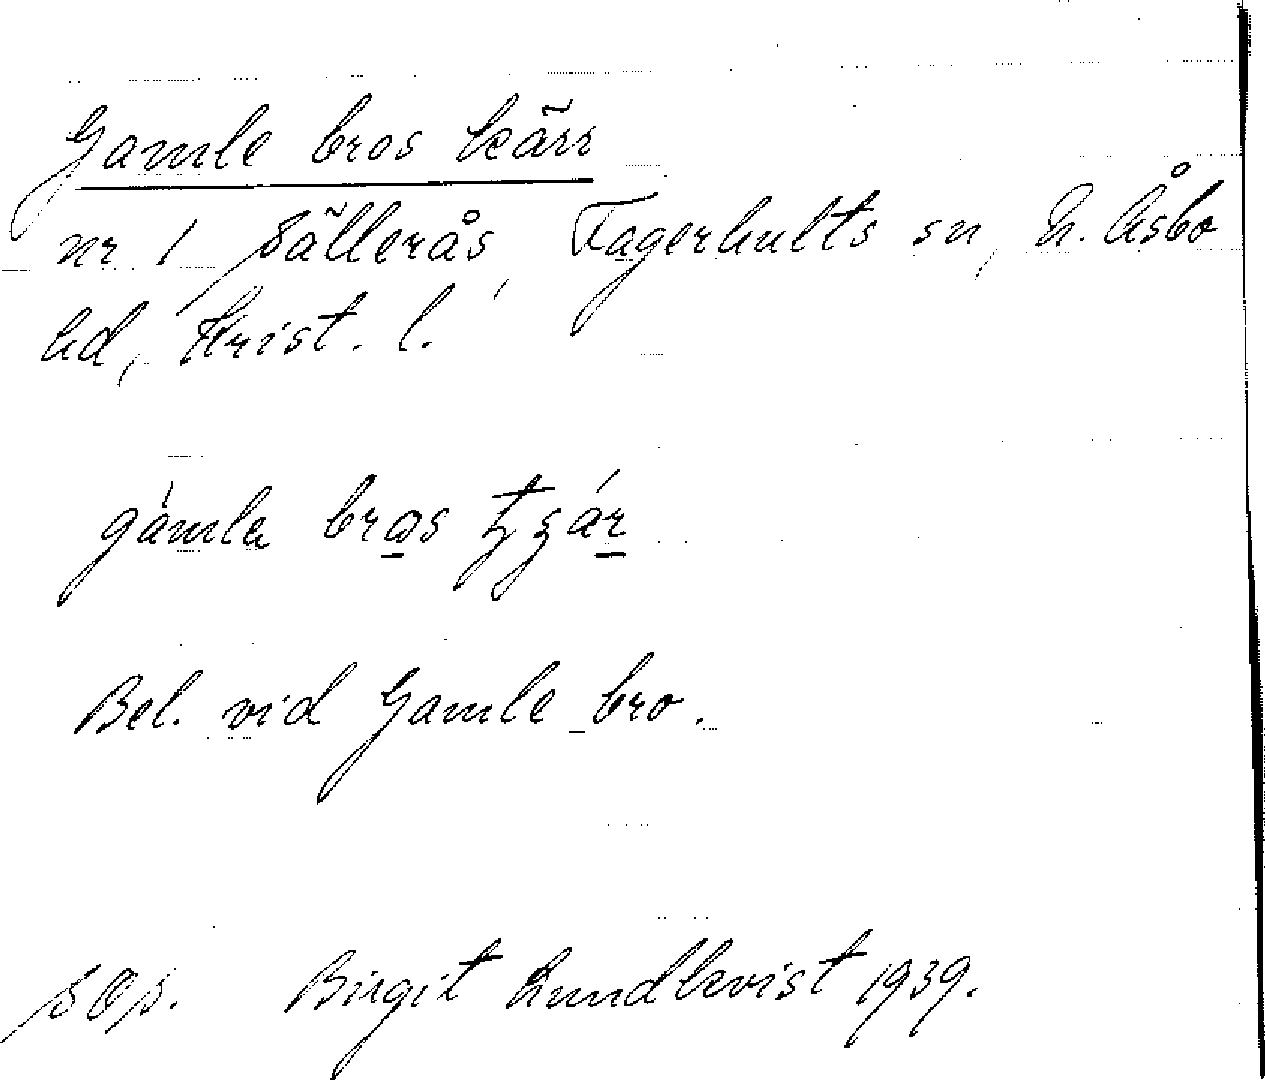 Gamle bros kärr
nr 1 Sällerås, Fagerhults sn, N. Åsbo
hd, Krist. l.
gàmla bros
Bel. vid Gamle bro.
Birgit Lundkvist 1939.